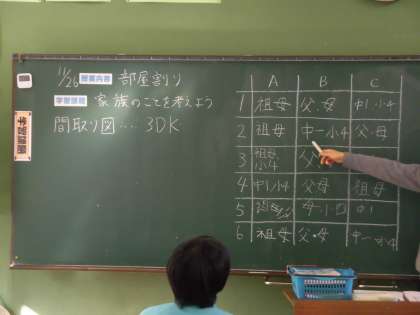 11/26 授業内容 部屋割り
学習課題 家族のことを考えよう
間取り図…3DK
A B C
1 祖母 父、母 中1、小4
2 祖母 中一小4 父・母
3 祖母 小4 父
4 中1、小4 父母 祖母
5 中1
6 祖母 父・母 中一 小4